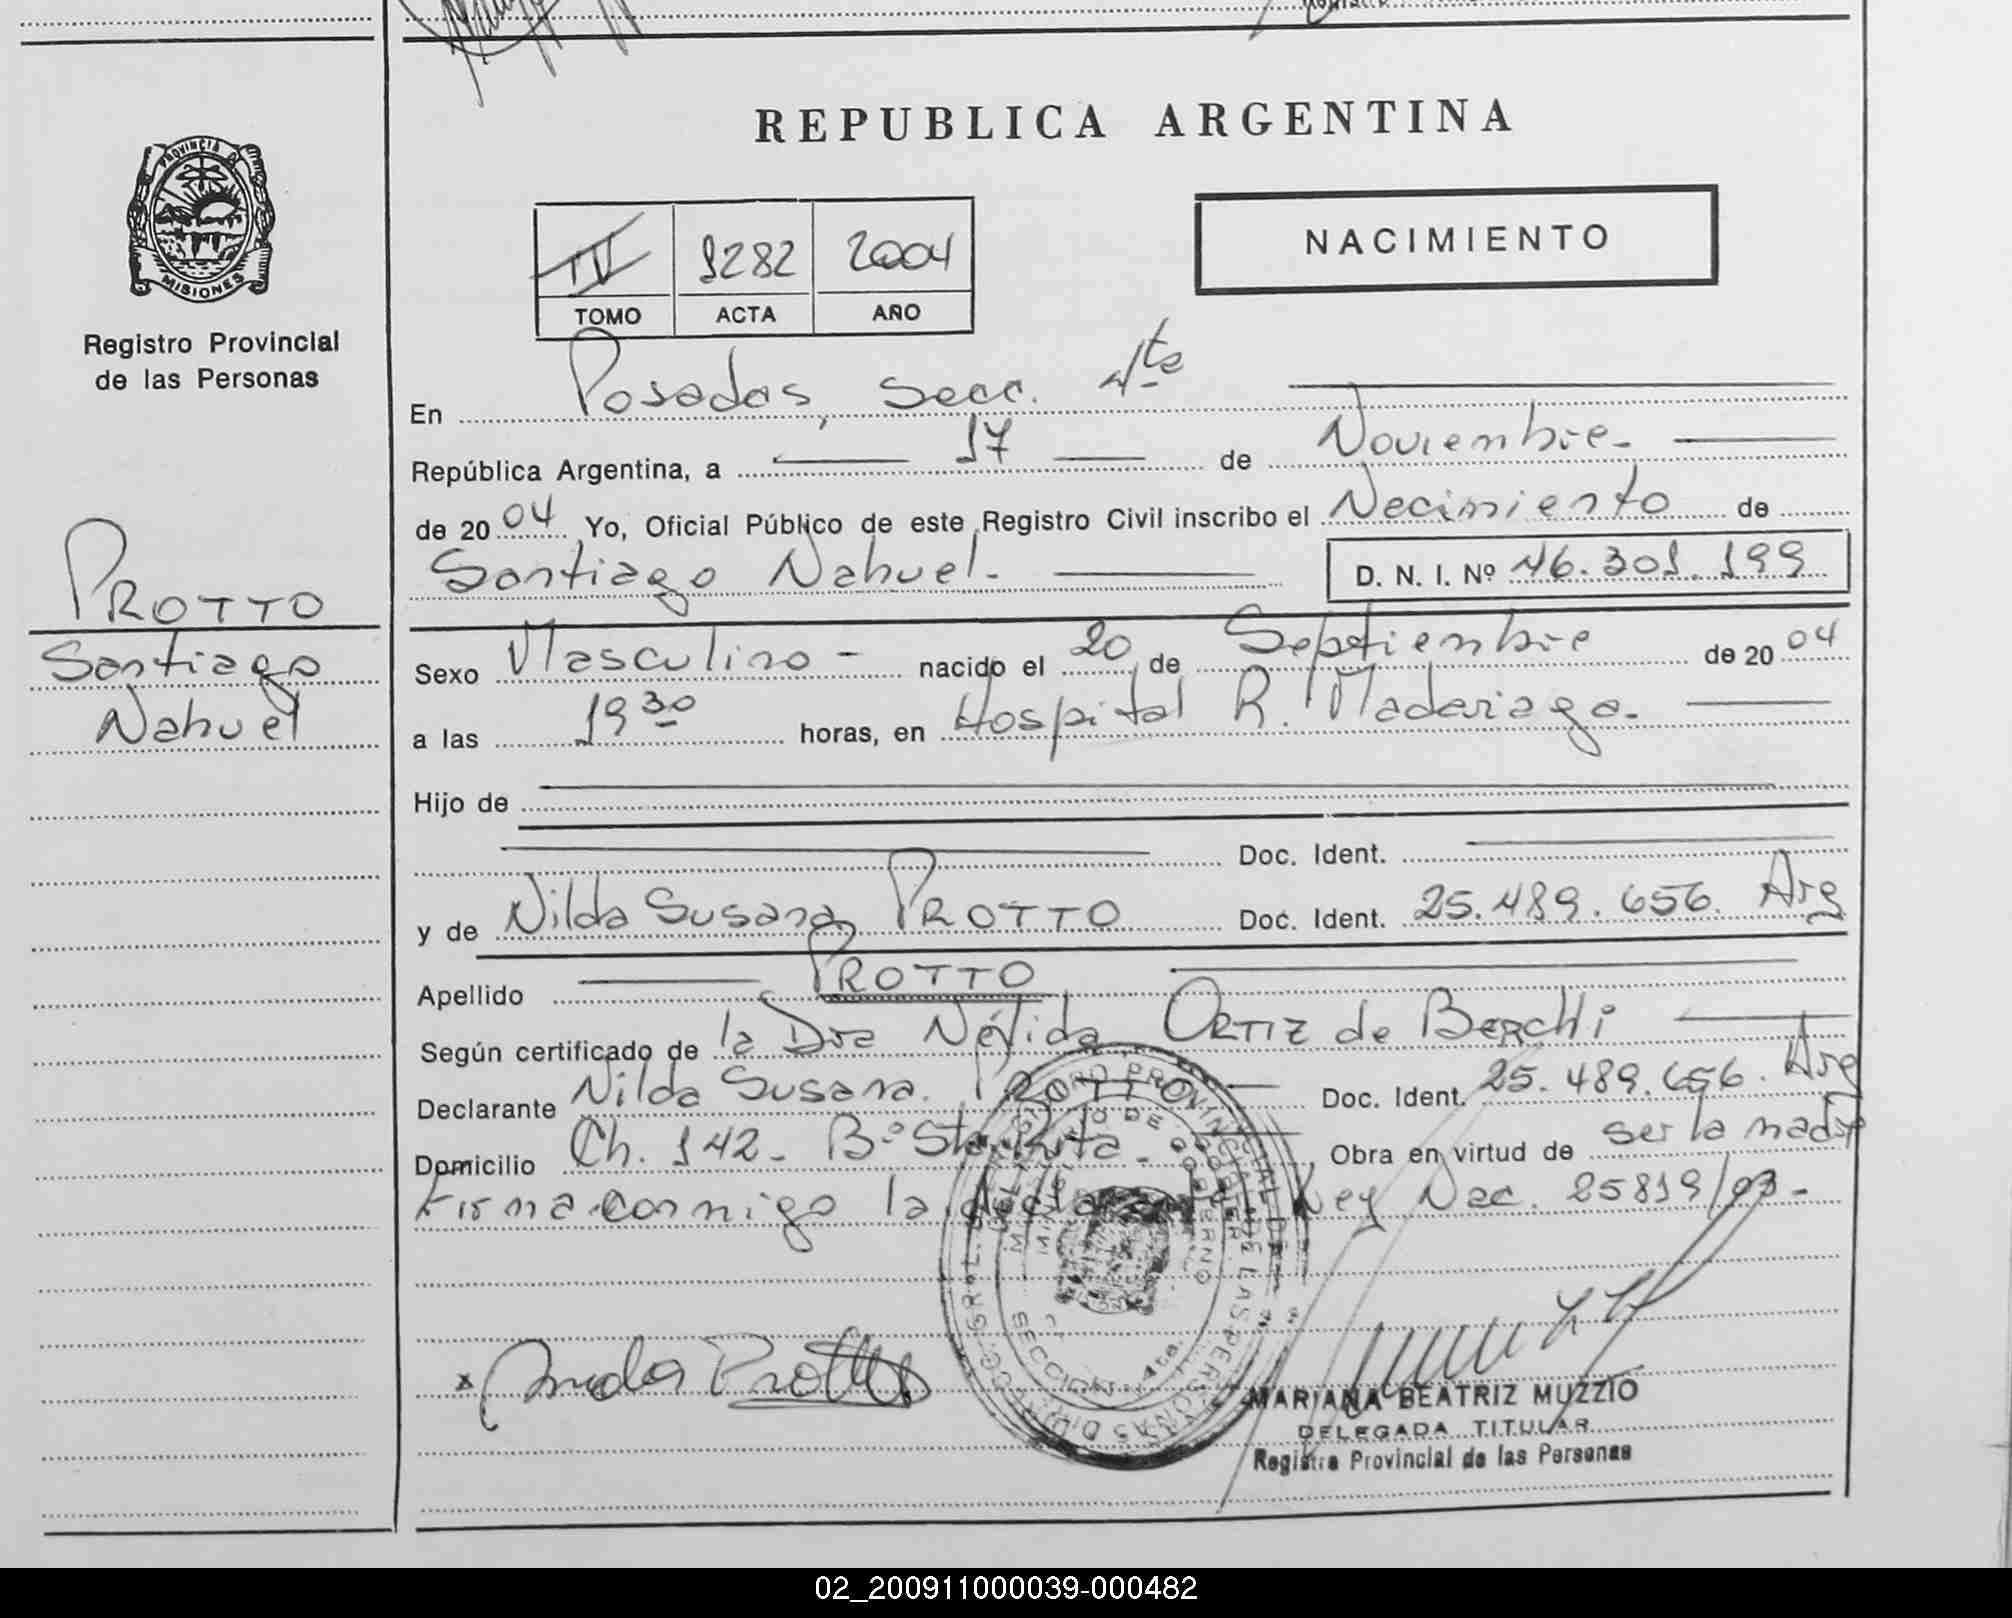 REPUBLICA ARGENTINA
PROVINCIA D
MISIONES
Registro Provincial
de las Personas
PROTTO
Santiago
Nahuel
NACIMIENTO
IV 1282 2004
TOMO ACTA AÑO
En Posadas, secc. 4te
República Argentina, a 17 de Noviembre.
de 2004 Yo, Oficial Público de este Registro Civil inscribo el Nacimiento de
Santiago Nahuel. D. N. I. Nº 46.301.199
Sexo Masculino - nacido el 20 de Septiembre de 2004
a las 19 30 horas, en Hospital R. Madariaga.
Hijo de
Doc. Ident.
y de Nilda Susana PROTTO Doc. Ident. 25.489.656. Arg
Apellido PROTTO
Según certificado de la Dra Nélida ORTIZ de BERCHI
Declarante Nilda Susana. PROTTO Doc. Ident. 25.489.656. Arg
Domicilio Ch. 142. Bº Sta. Rita. Obra en virtud de ser la madre
Firma conmigo la declarante Ley Nac. 25819/03-
x Nilda Protto
MARIANA BEATRIZ MUZZIO
DELEGADA TITULAR
Registro Provincial de las Personas
02_200911000039-000482